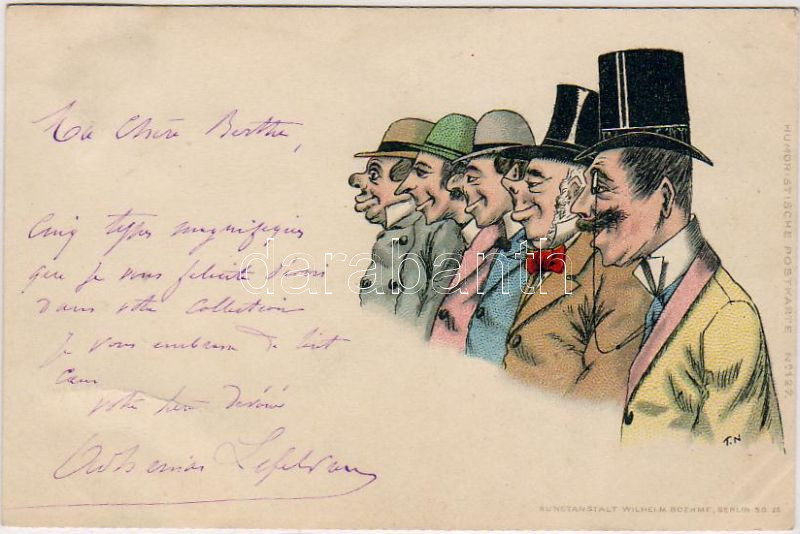 Ma chère Berthe,
Cinq types magnifiques
que je vous felicite
dans votre collection
Je vous embrasse de tout
votre
Lefebvre
darabanth
HUMORISTISCHE POSTKARTE No 127.
T.N
KUNSTANSTALT WILHELM BOEHME, BERLIN S.O.